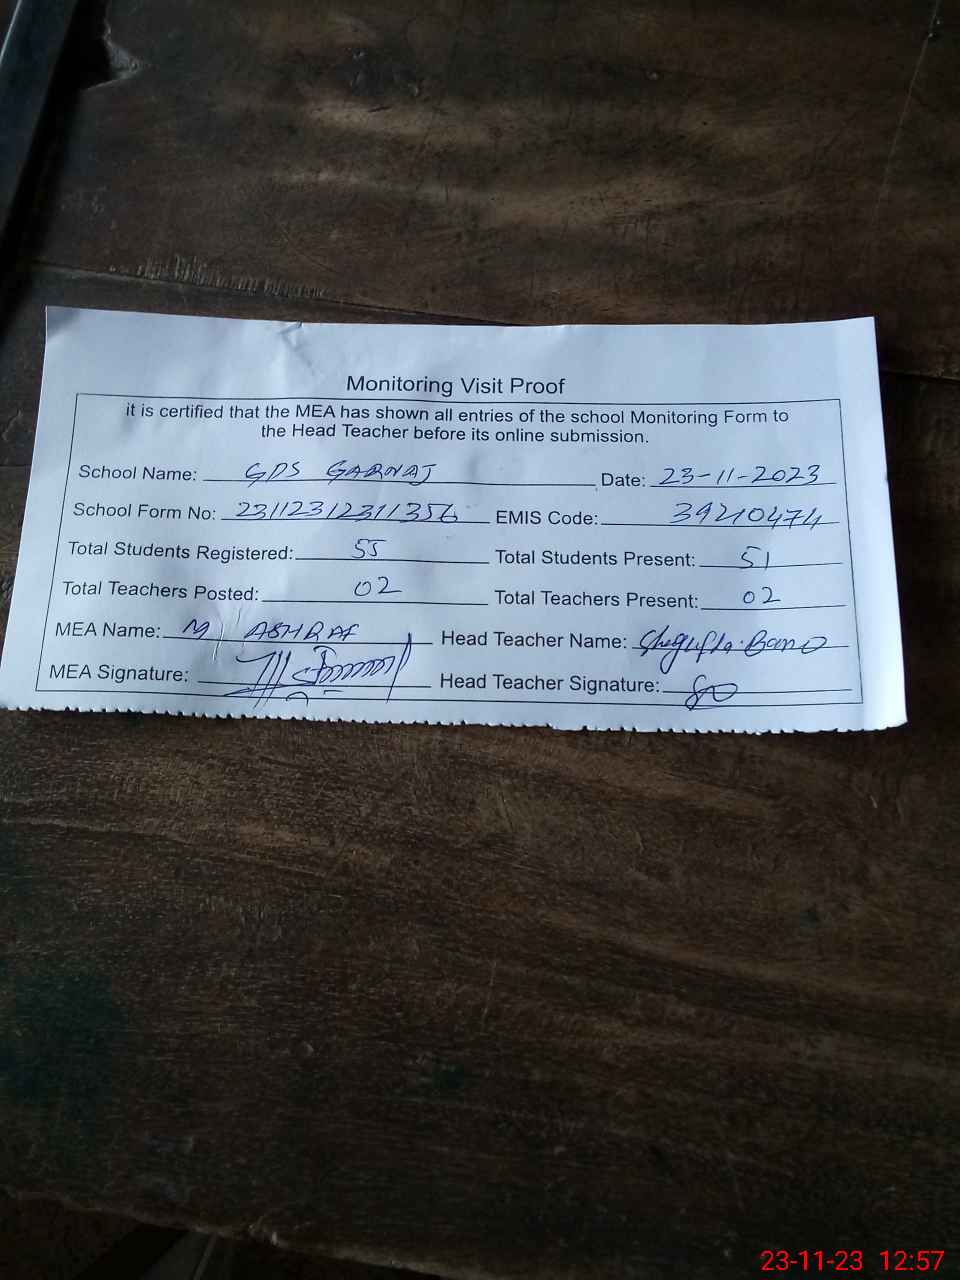 Monitoring Visit Proof
it is certified that the MEA has shown all entries of the school Monitoring Form to
the Head Teacher before its online submission.
School Name: GPS GARNAJ Date: 23-11-2023
School Form No: 23112312311356 EMIS Code: 39210474
Total Students Registered: 55 Total Students Present: 51
Total Teachers Posted: 02 Total Teachers Present: 02
MEA Name: M ASHRAF Head Teacher Name: Shegufta Bano
MEA Signature: Head Teacher Signature:
23-11-23 12:57